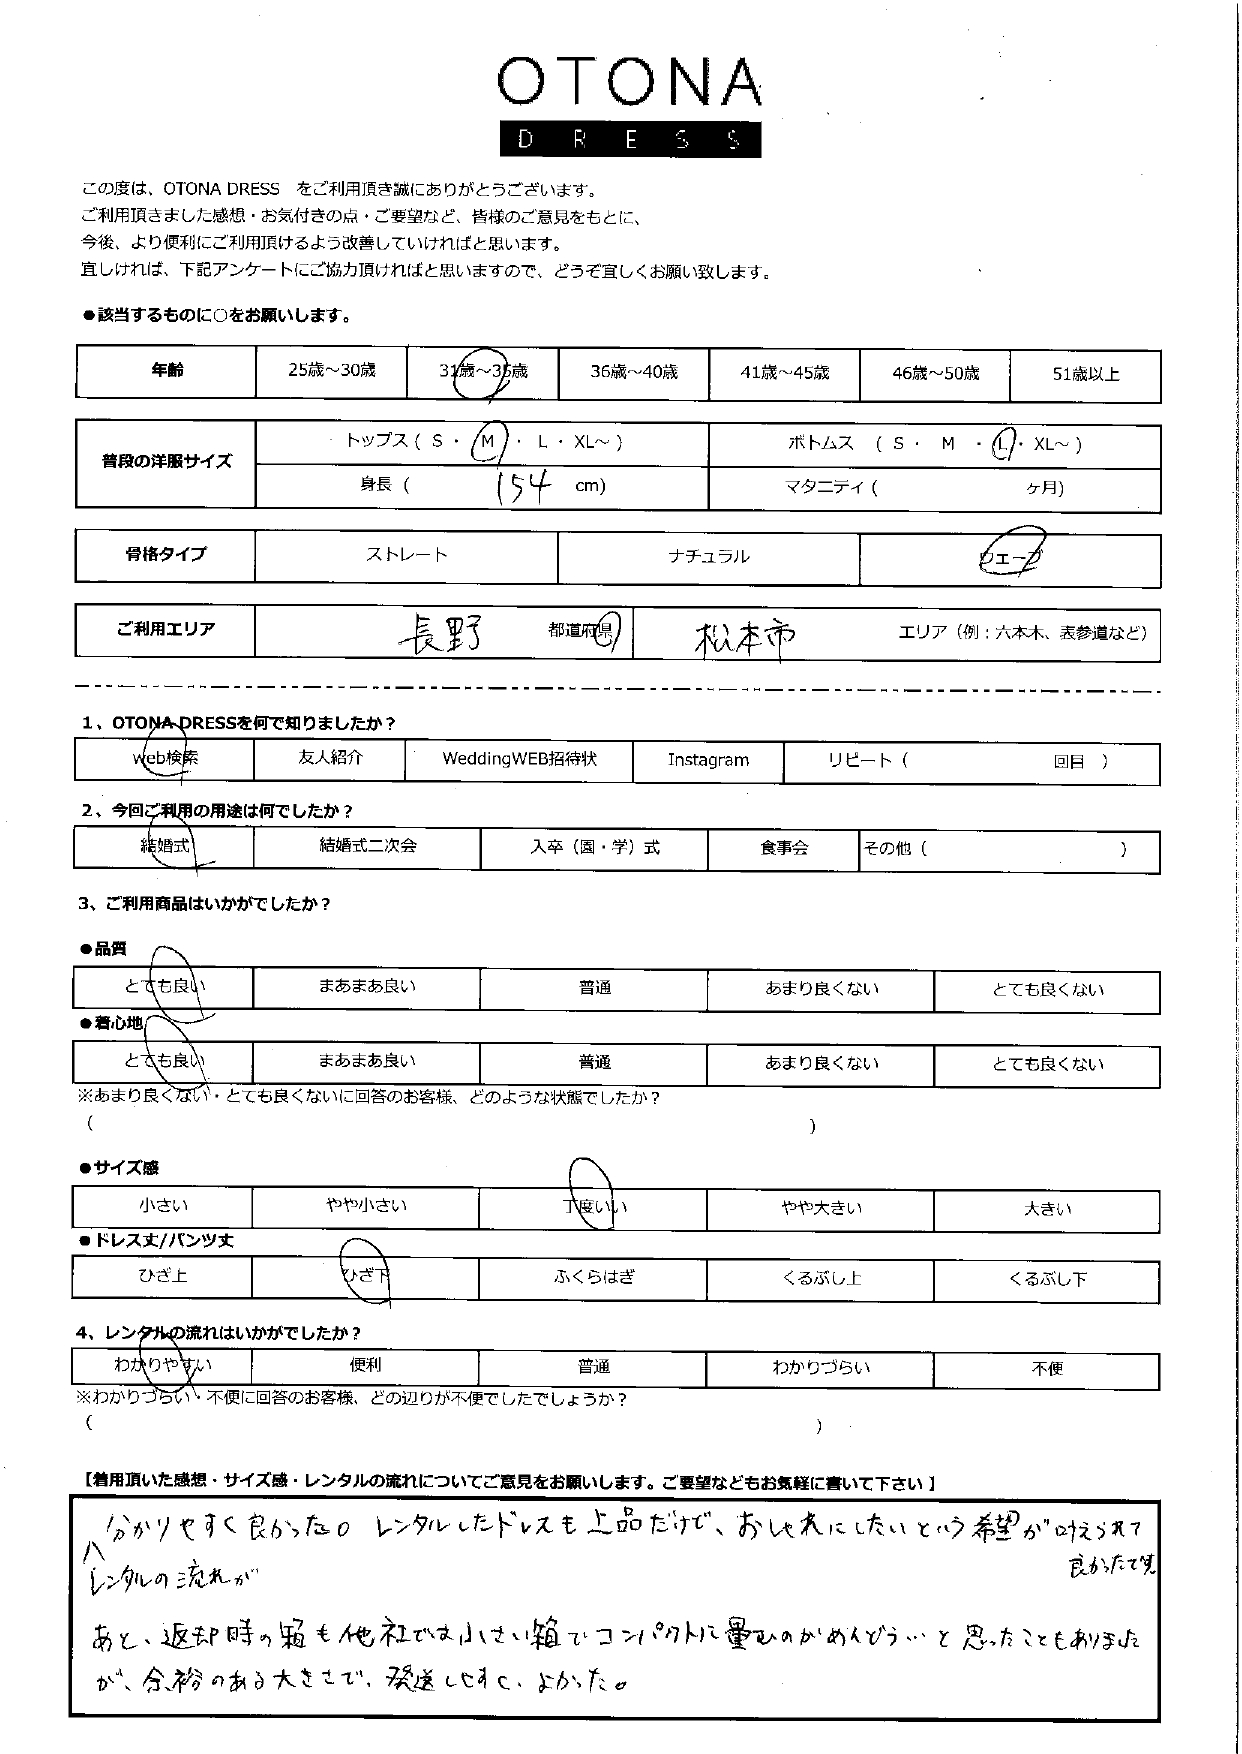 OTONA
DRESS
この度は、OTONA DRESS をご利用頂き誠にありがとうございます。
ご利用頂きました感想・お気付きの点・ご要望など、皆様のご意見をもとに、
今後、より便利にご利用頂けるよう改善していければと思います。
宜しければ、下記アンケートにご協力頂ければと思いますので、どうぞ宜しくお願い致します。
●該当するものに○をお願いします。
年齢 25歳～30歳 31歳～35歳 36歳～40歳 41歳～45歳 46歳～50歳 51歳以上
普段の洋服サイズ トップス ( S ・ M ・ L ・ XL～ ) ボトムス ( S ・ M ・ L ・ XL～ )
身長 ( 154 cm) マタニティ ( ヶ月)
骨格タイプ ストレート ナチュラル ウエーブ
ご利用エリア 長野 都道府県 松本市 エリア（例：六本木、表参道など）
1、OTONA DRESSを何で知りましたか？
web検索 友人紹介 WeddingWEB招待状 Instagram リピート ( 回目 )
2、今回ご利用の用途は何でしたか？
結婚式 結婚式二次会 入卒（園・学）式 食事会 その他 ( )
3、ご利用商品はいかがでしたか？
●品質
とても良い まあまあ良い 普通 あまり良くない とても良くない
●着心地
とても良い まあまあ良い 普通 あまり良くない とても良くない
※あまり良くない・とても良くないに回答のお客様、どのような状態でしたか？
( )
●サイズ感
小さい やや小さい 丁度いい やや大きい 大きい
●ドレス丈/パンツ丈
ひざ上 ひざ下 ふくらはぎ くるぶし上 くるぶし下
4、レンタルの流れはいかがでしたか？
わかりやすい 便利 普通 わかりづらい 不便
※わかりづらい・不便に回答のお客様、どの辺りが不便でしたでしょうか？
( )
【着用頂いた感想・サイズ感・レンタルの流れについてご意見をお願いします。ご要望などもお気軽に書いて下さい】
分かりやすく良かった。レンタルしたドレスも上品だけで、おしゃれにしたいという希望が叶えられて
良かったです
レンタルの流れが
あと、返却時の箱も他社では小さい箱でコンパクトに畳むのがめんどう…と思ったこともありました
が、余裕のある大きさで、発送しやすく、よかった。